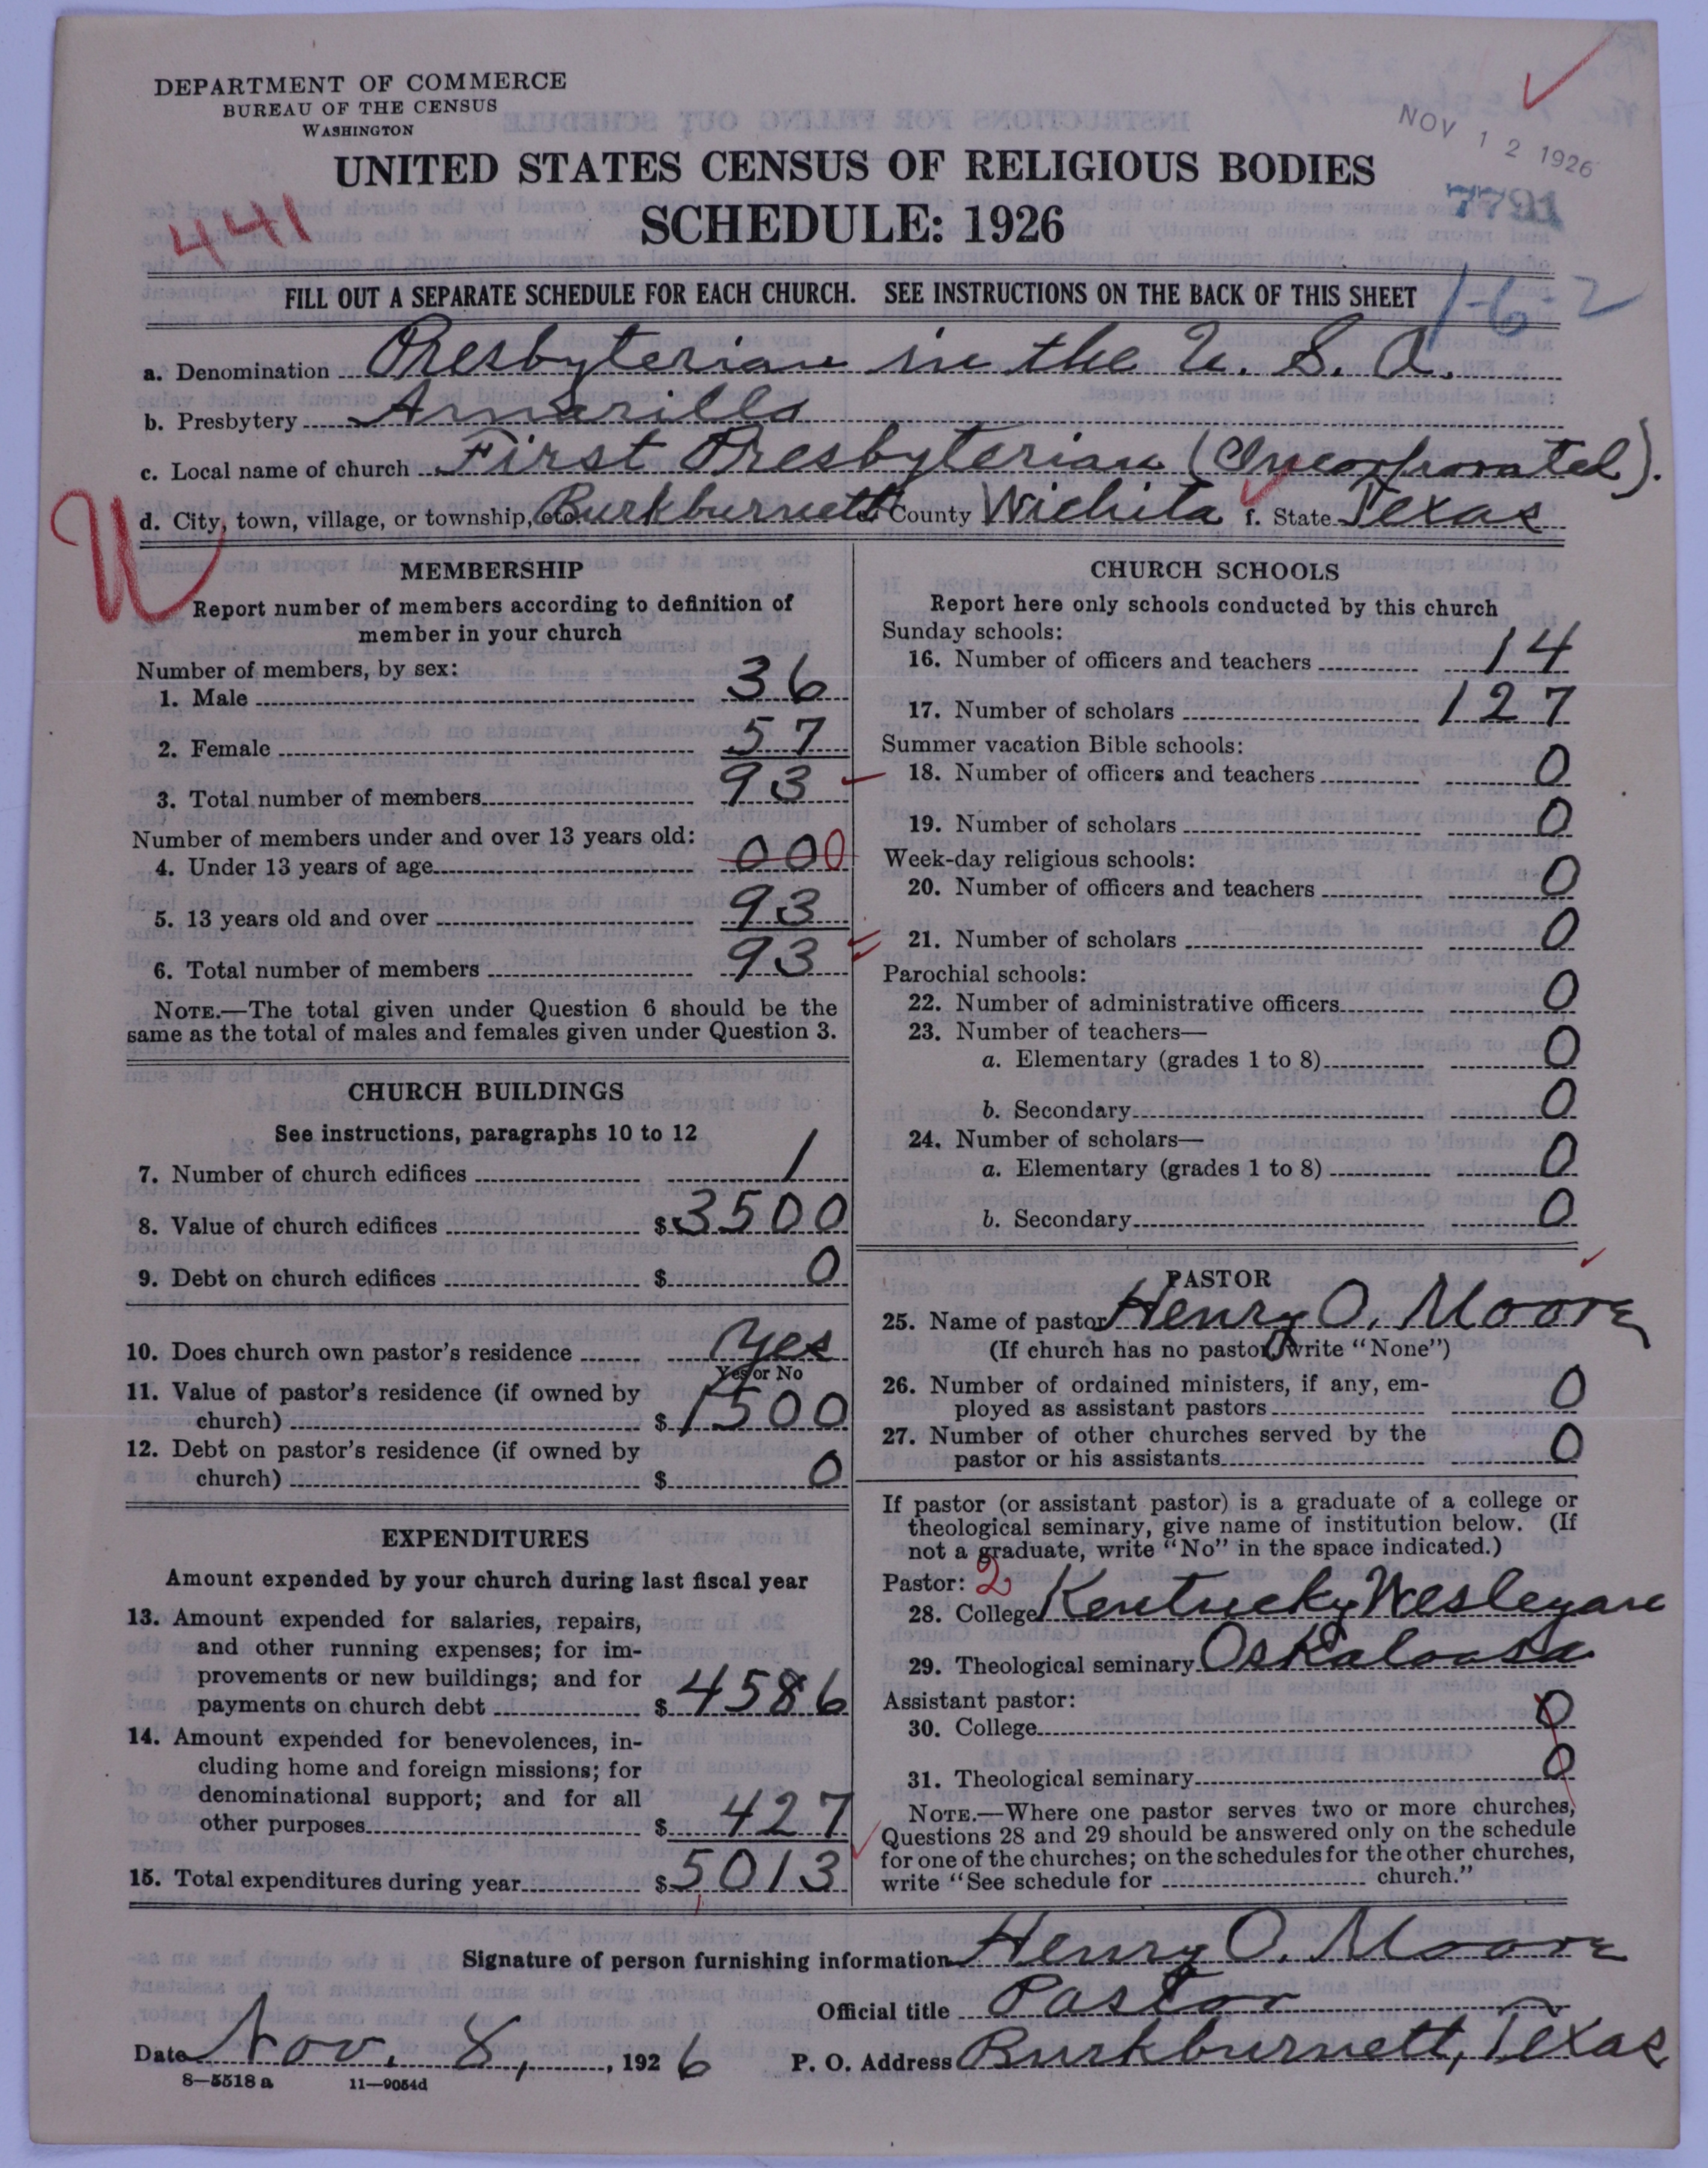 DEPARTMENT OF COMMERCE
BUREAU OF THE CENSUS
WASHINGTON
NOV 12 1926
UNITED STATES CENSUS OF RELIGIOUS BODIES
7791
441
SCHEDULE: 1926
FILL OUT A SEPARATE SCHEDULE FOR EACH CHURCH. SEE INSTRUCTIONS ON THE BACK OF THIS SHEET
1-6-2
a. Denomination Presbyterian in the U. S. A.
b. Presbytery Amarillo
c. Local name of church First Presbyterian (Incorporated).
d. City, town, village, or township, etc. Burkburnett County Wichita f. State Texas
W
MEMBERSHIP
Report number of members according to definition of
member in your church
Number of members, by sex:
1. Male 36
2. Female 57
3. Total number of members 93
Number of members under and over 13 years old:
4. Under 13 years of age 000
5. 13 years old and over 93
6. Total number of members 93
NOTE.—The total given under Question 6 should be the
same as the total of males and females given under Question 3.
CHURCH BUILDINGS
See instructions, paragraphs 10 to 12
7. Number of church edifices 1
8. Value of church edifices $3500
9. Debt on church edifices $ 0
10. Does church own pastor's residence Yes
Yes or No
11. Value of pastor's residence (if owned by
church) $1500
12. Debt on pastor's residence (if owned by
church) $ 0
EXPENDITURES
Amount expended by your church during last fiscal year
13. Amount expended for salaries, repairs,
and other running expenses; for im-
provements or new buildings; and for
payments on church debt $4586
14. Amount expended for benevolences, in-
cluding home and foreign missions; for
denominational support; and for all
other purposes $ 427
15. Total expenditures during year $5013
CHURCH SCHOOLS
Report here only schools conducted by this church
Sunday schools:
16. Number of officers and teachers 14
17. Number of scholars 127
Summer vacation Bible schools:
18. Number of officers and teachers 0
19. Number of scholars 0
Week-day religious schools:
20. Number of officers and teachers 0
21. Number of scholars 0
Parochial schools:
22. Number of administrative officers 0
23. Number of teachers—
a. Elementary (grades 1 to 8) 0
b. Secondary 0
24. Number of scholars—
a. Elementary (grades 1 to 8) 0
b. Secondary 0
PASTOR
25. Name of pastor Henry O. Moore
(If church has no pastor, write "None")
26. Number of ordained ministers, if any, em-
ployed as assistant pastors 0
27. Number of other churches served by the
pastor or his assistants 0
If pastor (or assistant pastor) is a graduate of a college or
theological seminary, give name of institution below. (If
not a graduate, write "No" in the space indicated.)
Pastor: 2
28. College Kentucky Wesleyan
29. Theological seminary Oskaloosa
Assistant pastor:
30. College 0
31. Theological seminary 0
NOTE.—Where one pastor serves two or more churches,
Questions 28 and 29 should be answered only on the schedule
for one of the churches; on the schedules for the other churches,
write "See schedule for church."
Signature of person furnishing information Henry O. Moore
Official title Pastor
Date Nov. 8, , 1926 P. O. Address Burkburnett, Texas
8—5518 a 11—9054d